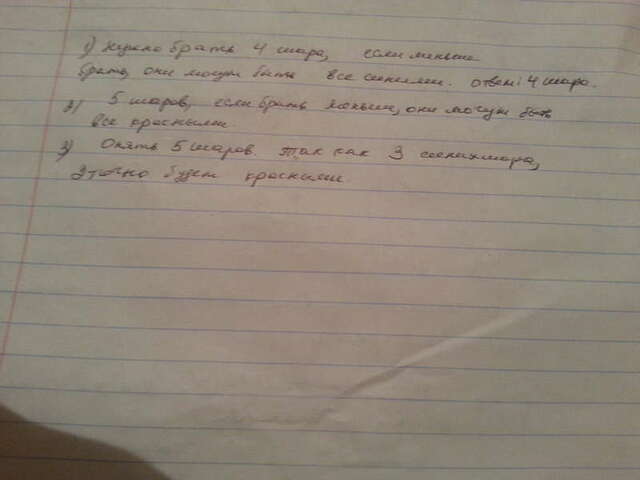 1) Нужно брать 4 шара, если меньше
брать, они могут быть все синими. ответ: 4 шара.
2) 5 шаров, если брать меньше, они могут быть
все красными.
3) Опять 5 шаров. Так как 3 синих шара,
2 точно будет красными.